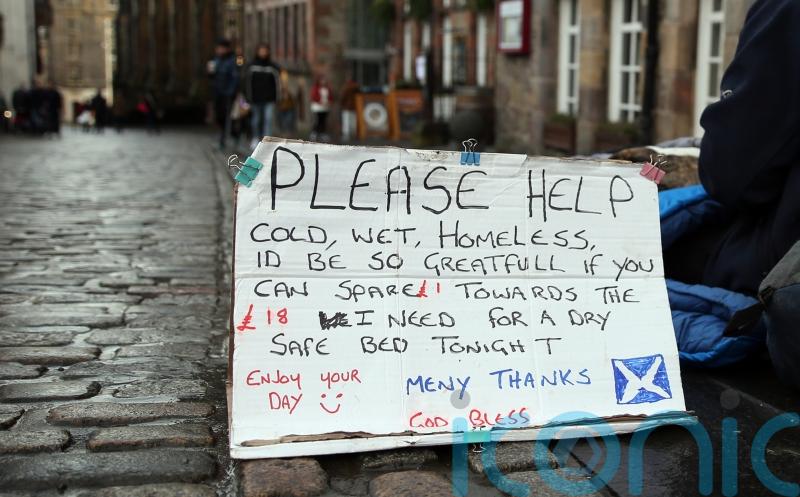 PLEASE HELP
COLD, WET, HOMELESS,
ID BE SO GREATFULL IF YOU
CAN SPARE £1 TOWARDS THE
£18 I NEED FOR A DRY
SAFE BED TONIGHT
ENJOY YOUR
DAY
MENY THANKS
GOD BLESS
iconic